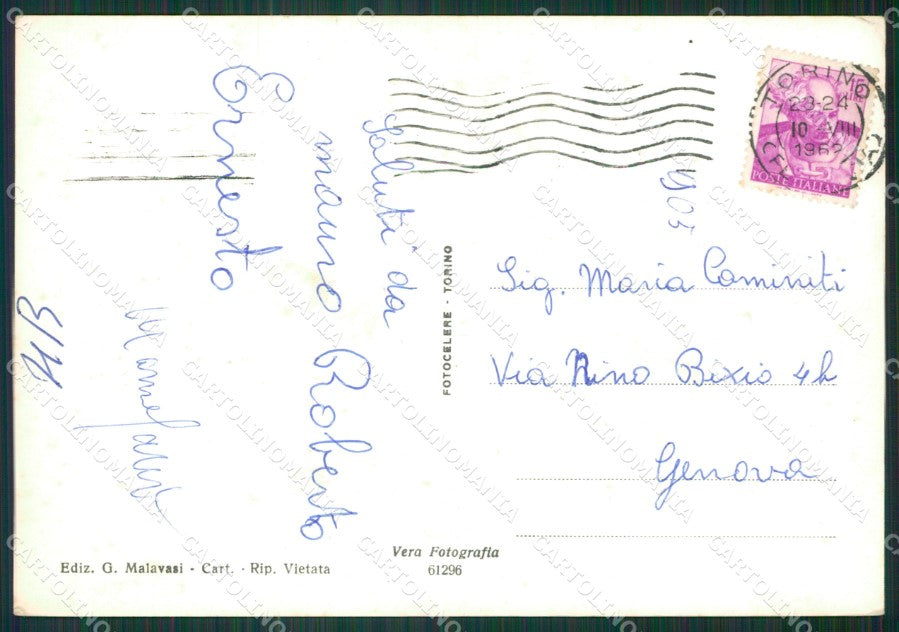 Saluti da
mauro Roberto
Ernesto
9/11
903
TORINO
23-24
10 VIII
1962
POSTE ITALIANE
Sig. Maria Caminiti
Via Nino Bixio 4h
Genova
FOTOCELERE - TORINO
Vera Fotografia
61296
Ediz. G. Malavasi - Cart. - Rip. Vietata
CARTOLINOMANIA